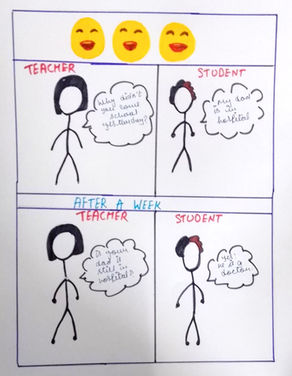 TEACHER
Why didn't
you come
school
yesterday?
STUDENT
My dad
is in
hospital
AFTER A WEEK
TEACHER
is your
dad is
still in
hospital?
STUDENT
yes
he is a
doctor